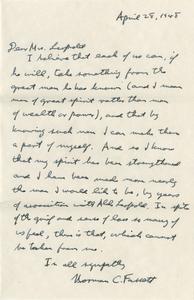 April 28, 1948
Dear Mrs. Leopold
I believe that each of us can, if
he will, take something from the
great men he has known (and I mean
men of great spirit rather than men
of wealth or power), and that by
knowing such men I can make them
a part of myself. And so I know
that my spirit has been strengthened
and I have been made more nearly
the man I would like to be, by years
of association with Aldo Leopold. In spite
of the grief and sense of loss so many of
us feel, this is that, which cannot
be taken from me.
In all sympathy
Norman C. Fassett